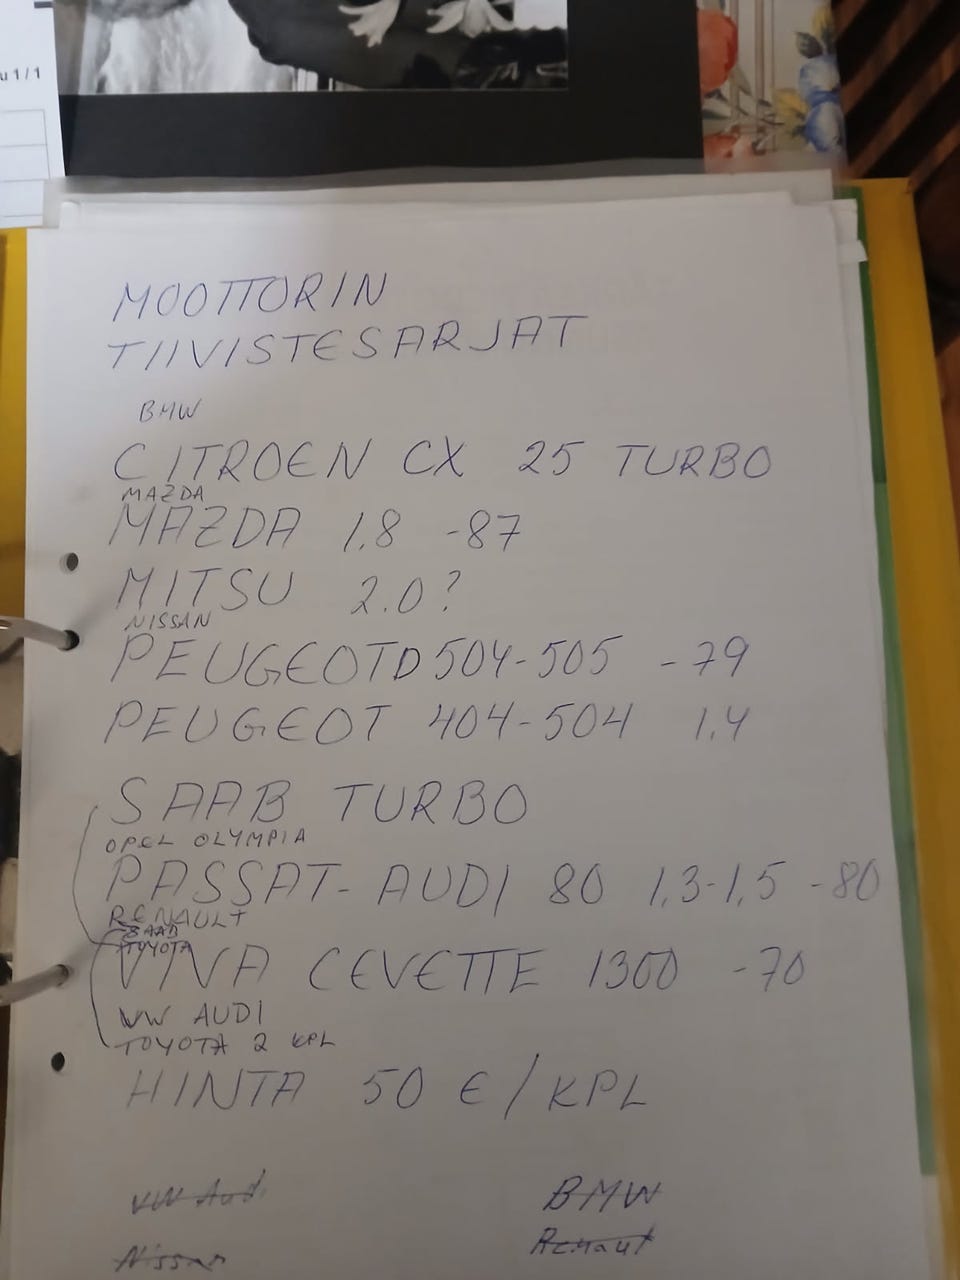 u 1 / 1
MOOTTORIN
TIIVISTESARJAT
BMW
CITROEN CX 25 TURBO
MAZDA
MAZDA 1.8 -87
MITSU 2.0?
NISSAN
PEUGEOT TD 504-505 -79
PEUGEOT 404-504 1.4
SAAB TURBO
OPEL OLYMPIA
PASSAT- AUDI 80 1,3-1,5 -80
RENAULT
SAAB
TOYOTA
VIVA CEVETTE 1300 -70
VW AUDI
TOYOTA 2 KPL
HINTA 50 € / KPL
VW Audi BMW
Nissan Renaut